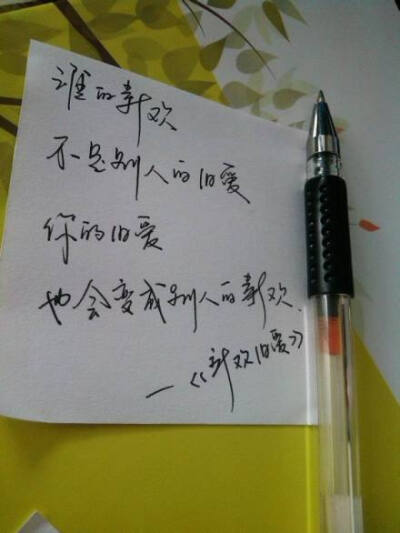 谁的新欢
不是别人的旧爱
你的旧爱
也会变成别人的新欢.
—《新欢旧爱》